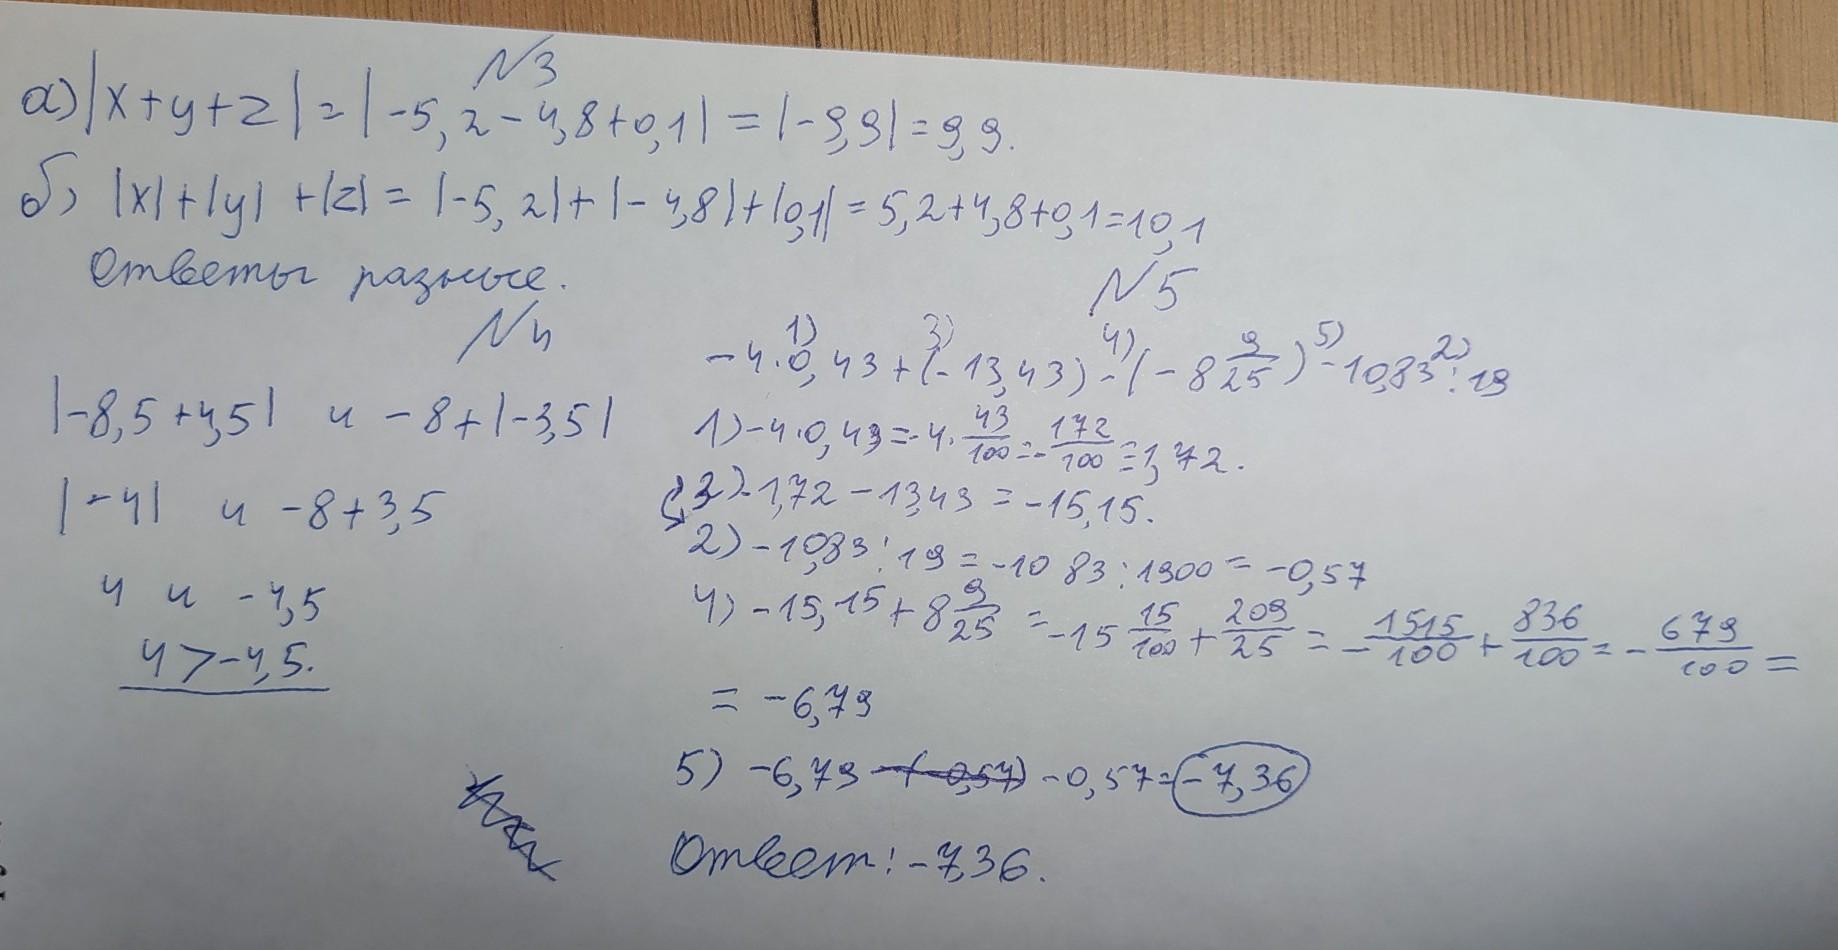 N3
а) |x+y+z| = |-5,2-4,8+0,1| = |-9,9| = 9,9.
б) |x|+|y|+|z| = |-5,2|+|-4,8|+|0,1| = 5,2+4,8+0,1=10,1
Ответы разные.
N4
|-8,5+4,5| и -8+|-3,5|
|-4| и -8+3,5
4 и -4,5
4>-4,5.
N5
1) 3) 4) 5) 2)
-4·0,43+(-13,43)-(-8 9/25)-10,83:19
1) -4·0,43=-4·43/100=-172/100=1,72.
3) -1,72-13,43=-15,15.
2) -10,83:19=-1083:1900=-0,57
4) -15,15+8 9/25=-15 15/100+209/25=-1515/100+836/100=-679/100=
=-6,79
5) -6,79 -(-0,57) -0,57=-7,36
Ответ: -7,36.